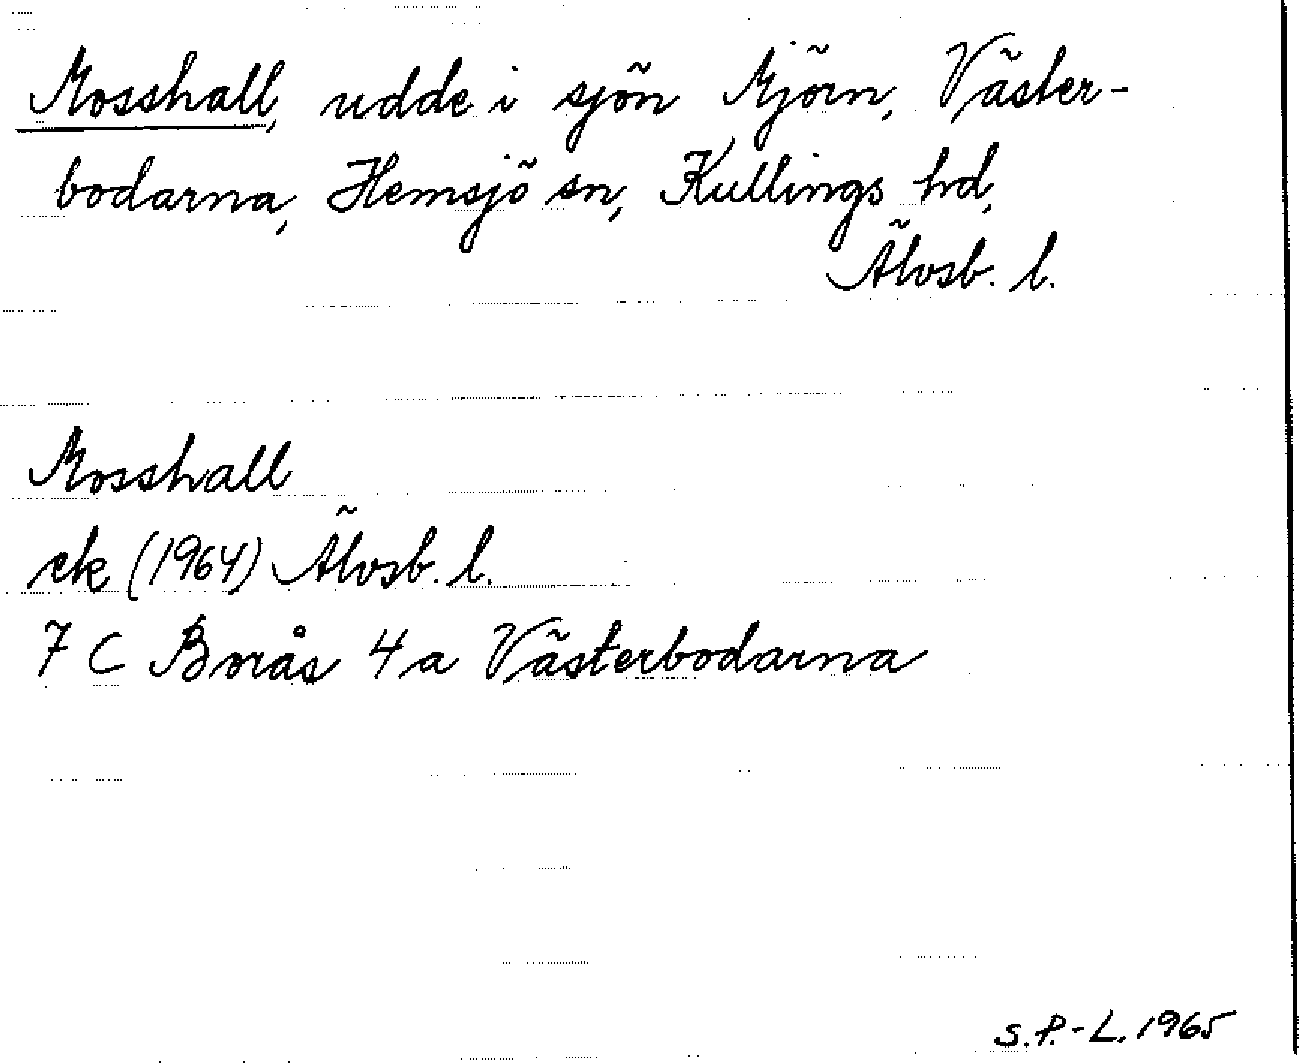 Mosshall, udde i sjön Mjörn, Väster-
bodarna, Hemsjö sn, Kullings hd,
Älvsb. l.
Mosshall
ek (1964) Älvsb. l.
7 C Borås 4 a Västerbodarna
S.P.-L. 1965